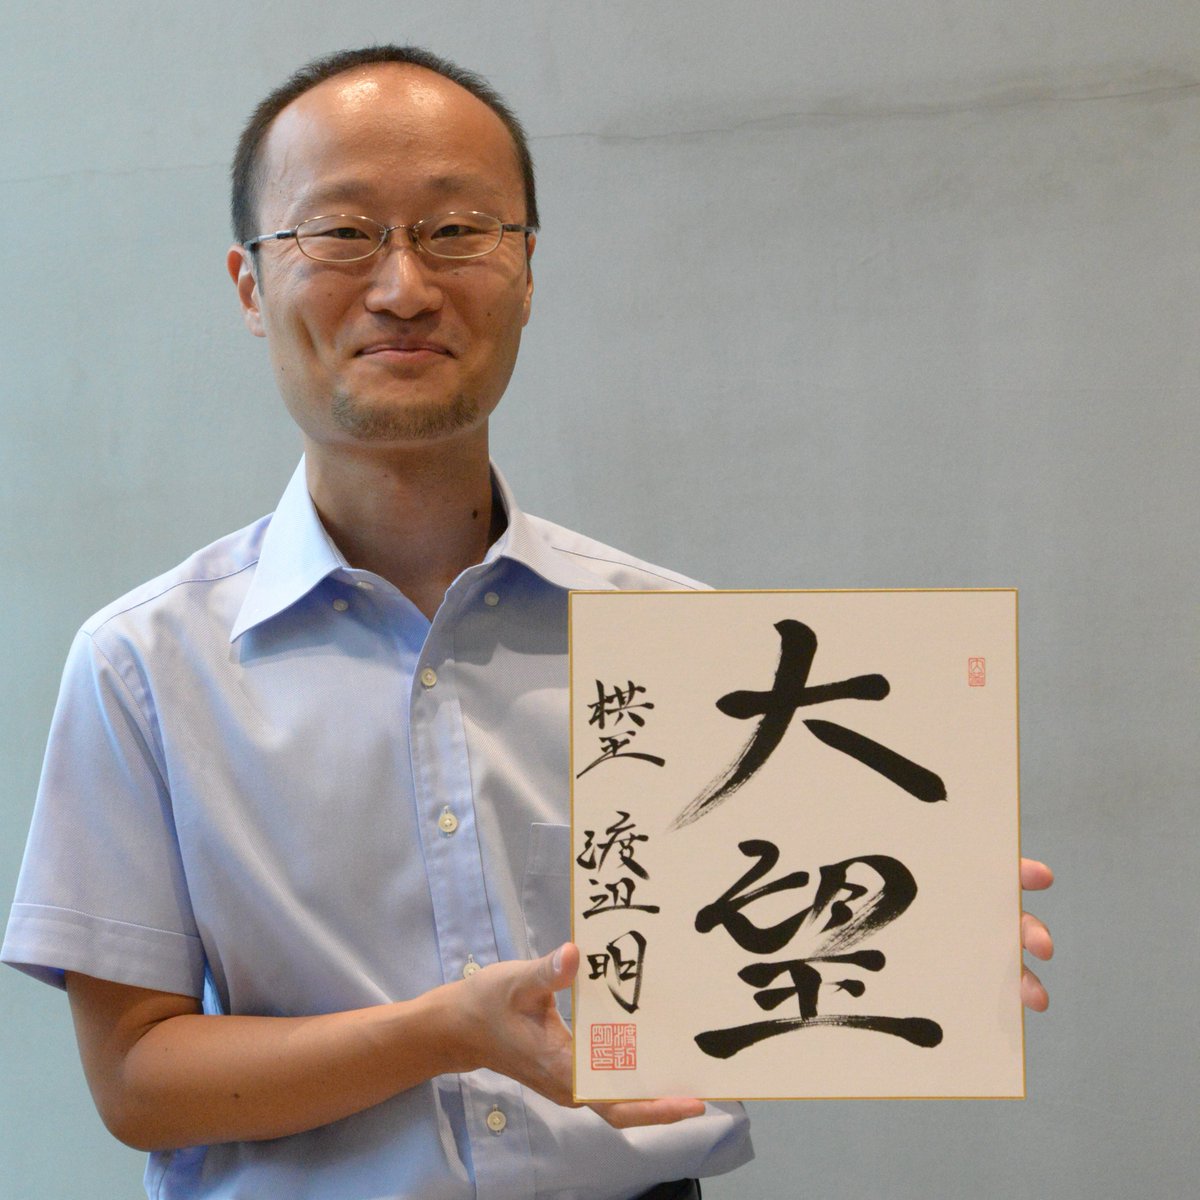 大望
棋王 渡辺 明